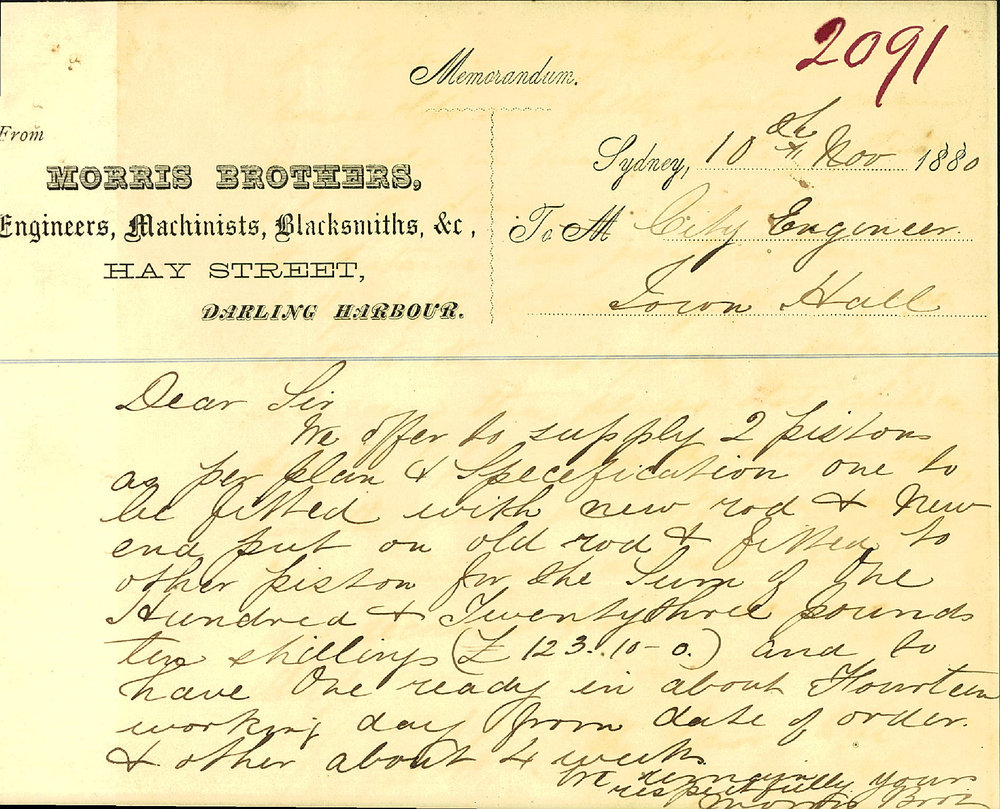 2091
Memorandum.
From
MORRIS BROTHERS,
Engineers, Machinists, Blacksmiths, &c,
HAY STREET,
DARLING HARBOUR.
Sydney, 10th Nov 1880
To M City Engineer.
Town Hall
Dear Sir
We offer to supply 2 pistons
as per plan & Specefication one to
be fitted with new rod & New
end put on old rod & fitted to
other piston for the Sum of One
Hundred & Twentythree pounds
ten shillings (£ 123..10-0.) and to
have One ready in about Fourteen
working day from date of order.
& other about 4 weeks
We remain yours
respectfully
Morris Bros